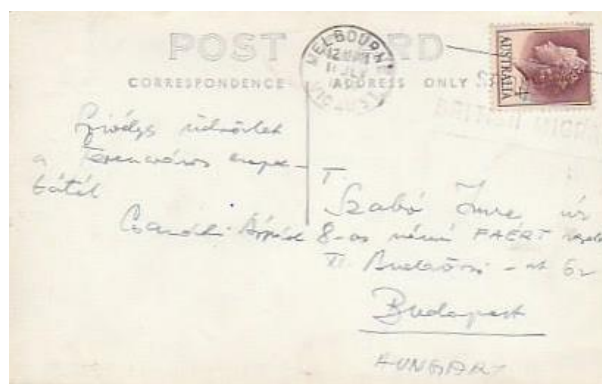 POST CARD
CORRESPONDENCE ADDRESS ONLY
MELBOURNE
AUSTRALIA
Szívélyes üdvözlet
a Ferencváros csapa-
tától
T.
Szabó Imre úr
8-as számú FAÉRT
Budaörsi - út
Budapest
HUNGARY